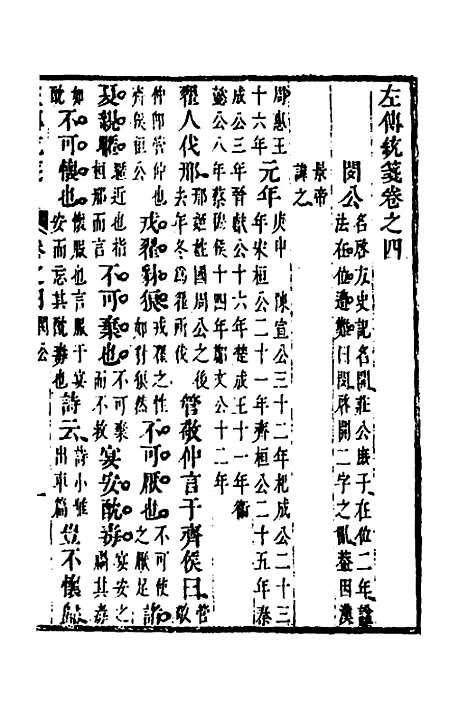 左傳統箋卷之四
閔公名啓方史記名開莊公庶子在位二年諡
法在位遭難曰閔啓開二字之亂蓋因漢
景帝
諱之
周惠王
十六年元年庚申 陳宣公三十二年杞成公二十三
年宋桓公二十一年齊桓公二十五年秦
成公三年晉獻公十六年楚成王十一年衛
懿公八年蔡穆侯十四年鄭文公十二年
狄人伐邢邢姬姓國周公之後
去年冬為狄所伐管敬仲言于齊侯曰管
敬
仲卽管仲也
齊侯桓公戎狄豺狼戎狄之性
如豺狼然不可厭也不可使
之厭足諸
夏親暱暱近也指
邢而言不可棄也不可棄
而不救宴安酖毒宴安之
禍甚毒
如
酖不可懷也言服于宴
安而忘其酖毒也詩云詩小雅
出車篇豈不懷歸